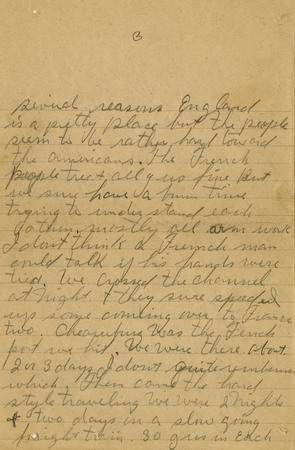 3
sevinal reasons England
is a pretty place but the people
seem to be rather hard toward
the americans. The French
people treat all of us fine but
we sure have a funn time
trying to understand each
other. mostly all arm work
I dont think a french man
could talk if his hands were
tied. We crossed the channel
at night & they sure speeded
up some comling over to France
two. was the Fench
port we hit. We were there about
2 or 3 days I dont quite remember
which. Then came the hard
style traveling We were 2 nights
& two days in a slow going
freight train. 30 of us in each